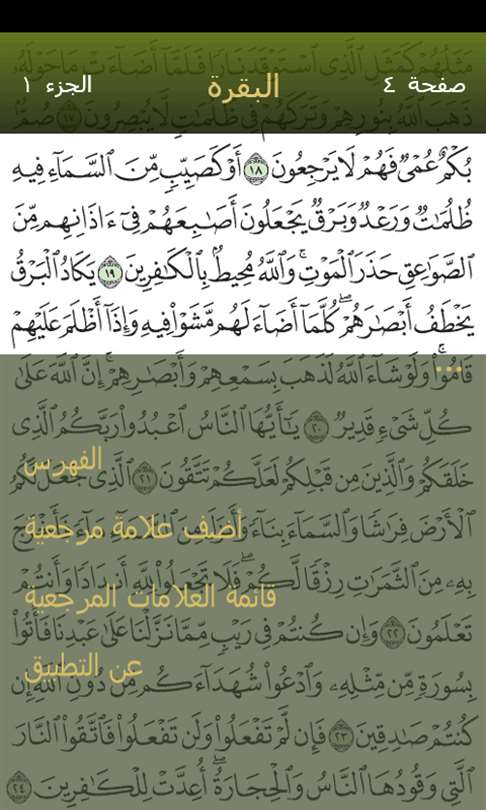 مَثَلُهُمْ كَمَثَلِ ٱلَّذِى ٱسْتَوْقَدَ نَارًا فَلَمَّآ أَضَآءَتْ مَا حَوْلَهُۥ
صفحة ٤ البقرة الجزء ١
ذَهَبَ ٱللَّهُ بِنُورِهِمْ وَتَرَكَهُمْ فِى ظُلُمَٰتٍ لَّا يُبْصِرُونَ ١٧ صُمٌّۢ
بُكْمٌ عُمْىٌ فَهُمْ لَا يَرْجِعُونَ ١٨ أَوْ كَصَيِّبٍ مِّنَ ٱلسَّمَآءِ فِيهِ
ظُلُمَٰتٌ وَرَعْدٌ وَبَرْقٌ يَجْعَلُونَ أَصَٰبِعَهُمْ فِىٓ ءَاذَانِهِم مِّنَ
ٱلصَّوَٰعِقِ حَذَرَ ٱلْمَوْتِ ۚ وَٱللَّهُ مُحِيطٌۢ بِٱلْكَٰفِرِينَ ١٩ يَكَادُ ٱلْبَرْقُ
يَخْطَفُ أَبْصَٰرَهُمْ ۖ كُلَّمَآ أَضَآءَ لَهُم مَّشَوْا۟ فِيهِ وَإِذَآ أَظْلَمَ عَلَيْهِمْ
...
قَامُوا۟ ۚ وَلَوْ شَآءَ ٱللَّهُ لَذَهَبَ بِسَمْعِهِمْ وَأَبْصَٰرِهِمْ ۚ إِنَّ ٱللَّهَ عَلَىٰ
كُلِّ شَىْءٍ قَدِيرٌ ٢٠ يَٰٓأَيُّهَا ٱلنَّاسُ ٱعْبُدُوا۟ رَبَّكُمُ ٱلَّذِى
خَلَقَكُمْ وَٱلَّذِينَ مِن قَبْلِكُمْ لَعَلَّكُمْ تَتَّقُونَ ٢١ ٱلَّذِى جَعَلَ لَكُمُ
الفهرس
ٱلْأَرْضَ فِرَٰشًا وَٱلسَّمَآءَ بِنَآءً وَأَنزَلَ مِنَ ٱلسَّمَآءِ مَآءً فَأَخْرَجَ
أضف علامة مرجعية
بِهِۦ مِنَ ٱلثَّمَرَٰتِ رِزْقًا لَّكُمْ ۖ فَلَا تَجْعَلُوا۟ لِلَّهِ أَندَادًا وَأَنتُمْ
قائمة العلامات المرجعية
تَعْلَمُونَ ٢٢ وَإِن كُنتُمْ فِى رَيْبٍ مِّمَّا نَزَّلْنَا عَلَىٰ عَبْدِنَا فَأْتُوا۟
بِسُورَةٍ مِّن مِّثْلِهِۦ وَٱدْعُوا۟ شُهَدَآءَكُم مِّن دُونِ ٱللَّهِ إِن
عن التطبيق
كُنتُمْ صَٰدِقِينَ ٢٣ فَإِن لَّمْ تَفْعَلُوا۟ وَلَن تَفْعَلُوا۟ فَٱتَّقُوا۟ ٱلنَّارَ
ٱلَّتِى وَقُودُهَا ٱلنَّاسُ وَٱلْحِجَارَةُ ۖ أُعِدَّتْ لِلْكَٰفِرِينَ ٢٤